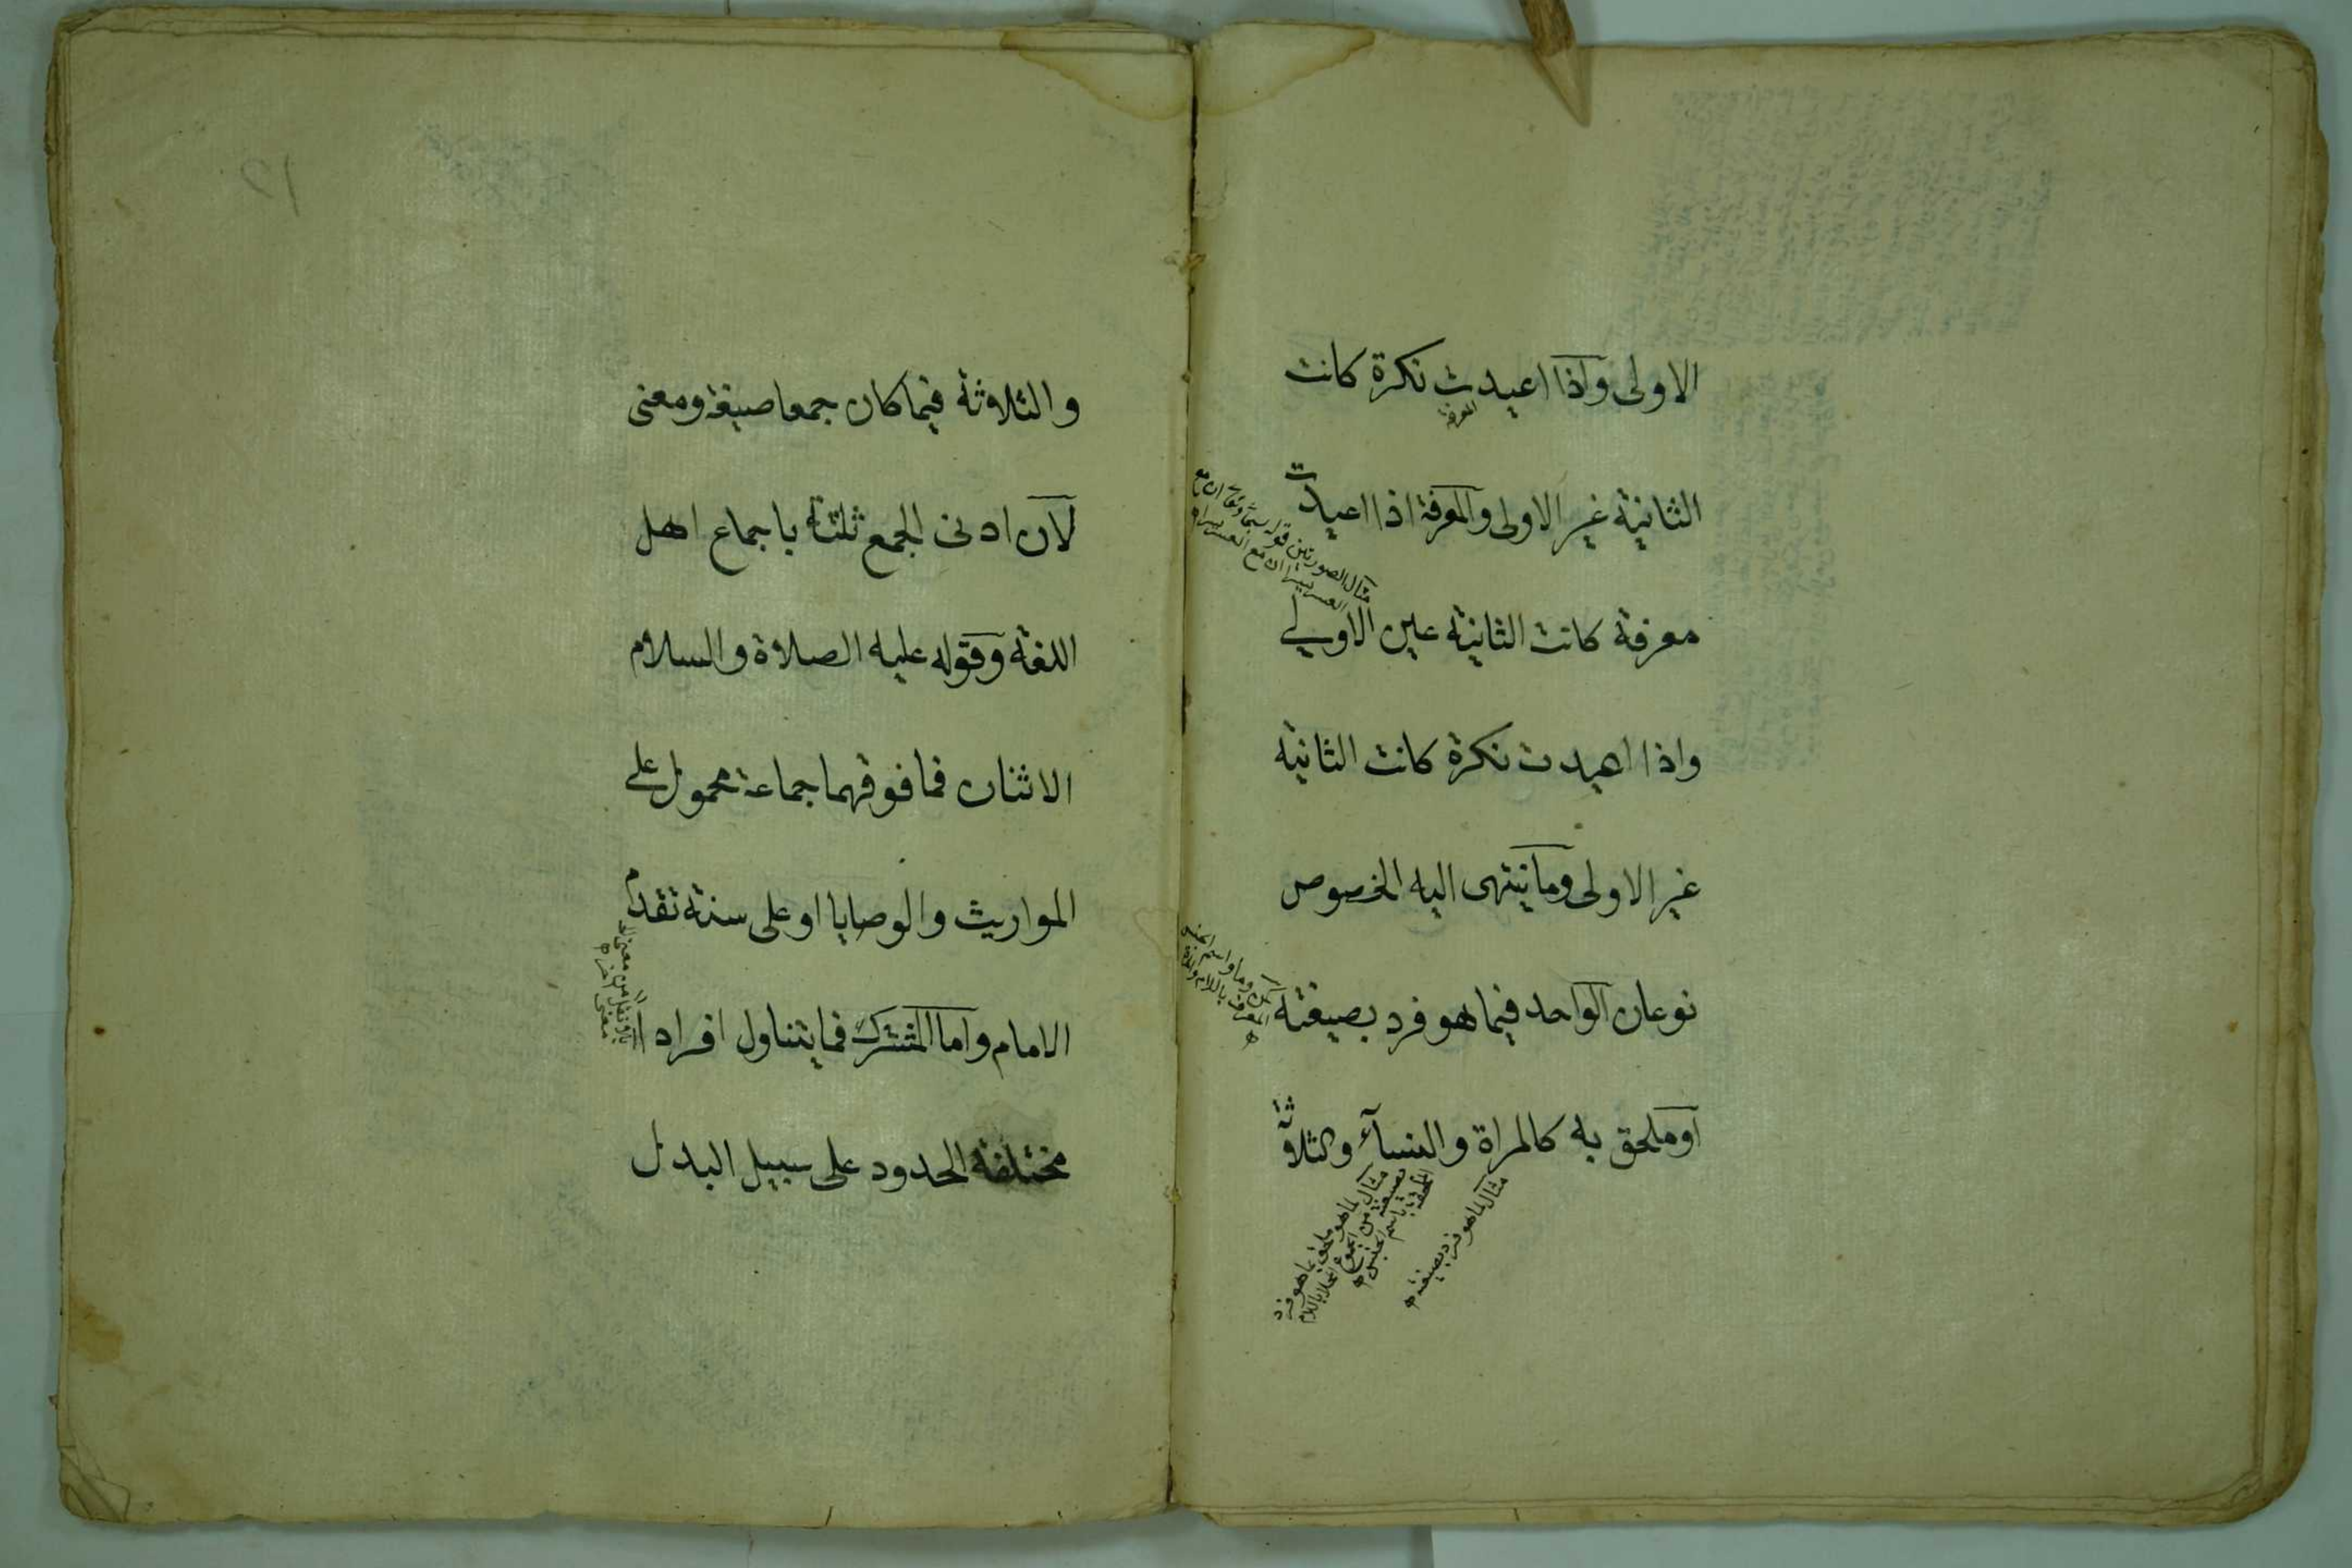 الاولى واذا اعيدت نكرة كانت
الثانية غير الاولى والمعرفة اذا اعيدت
معرفة كانت الثانية عين الاولى
واذا اعيدت نكرة كانت الثانية
غير الاولى وما ينتهى اليه الخصوص
نوعان الواحد فيما هو فرد بصيغته
او ملحق به كالمراة والنسآء والثلاثة
مثال لما هو فرد بصيغته
مثال لما هو ملحق بما هو فرد
بصيغته من الجموع المحلا باللام
والثلاثة فيما كان جمعا صيغة ومعنى
لان ادنى الجمع ثلثة باجماع اهل
اللغة وقوله عليه الصلاة والسلام
الاثنان فما فوقهما جماعة محمول على
المواريث والوصايا او على سنة تقدم
الامام واما المشترك فما يتناول افرادا
مختلفة الحدود على سبيل البدل
١٢